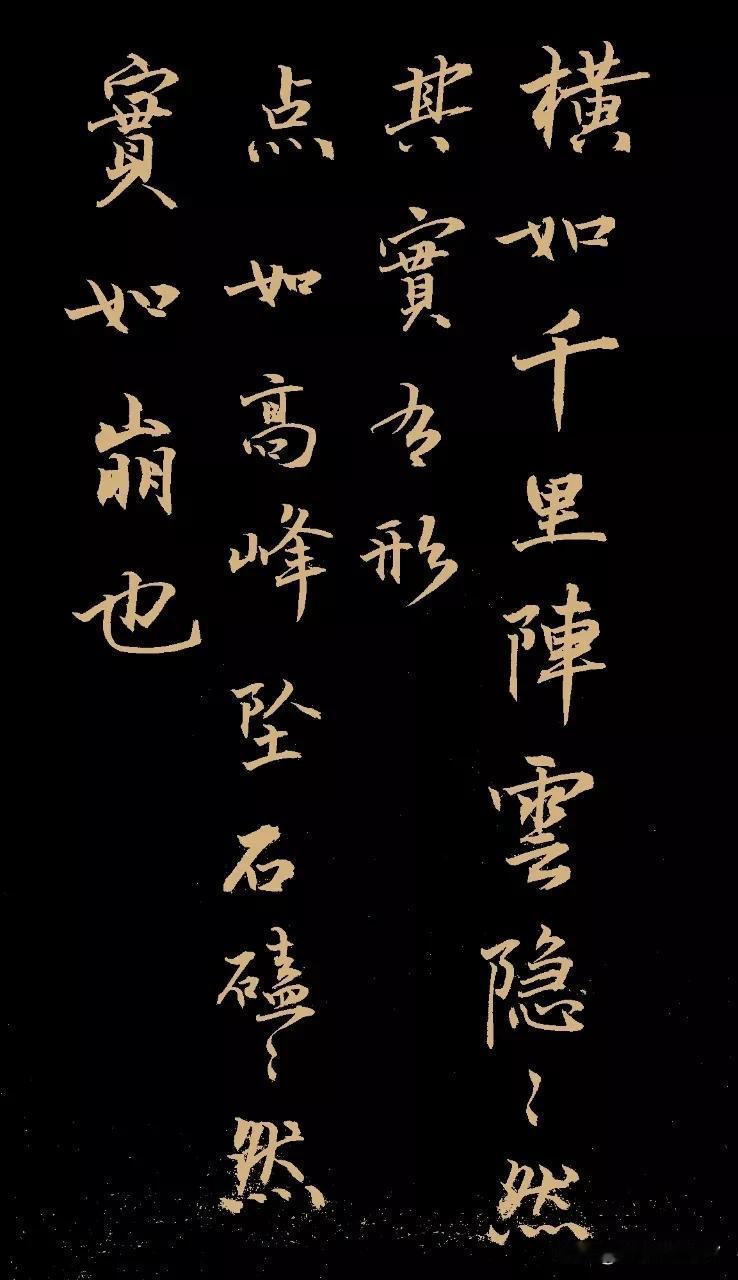 橫如千里陣雲隐〻然
其實有形
点如高峰坠石磕〻然
實如崩也